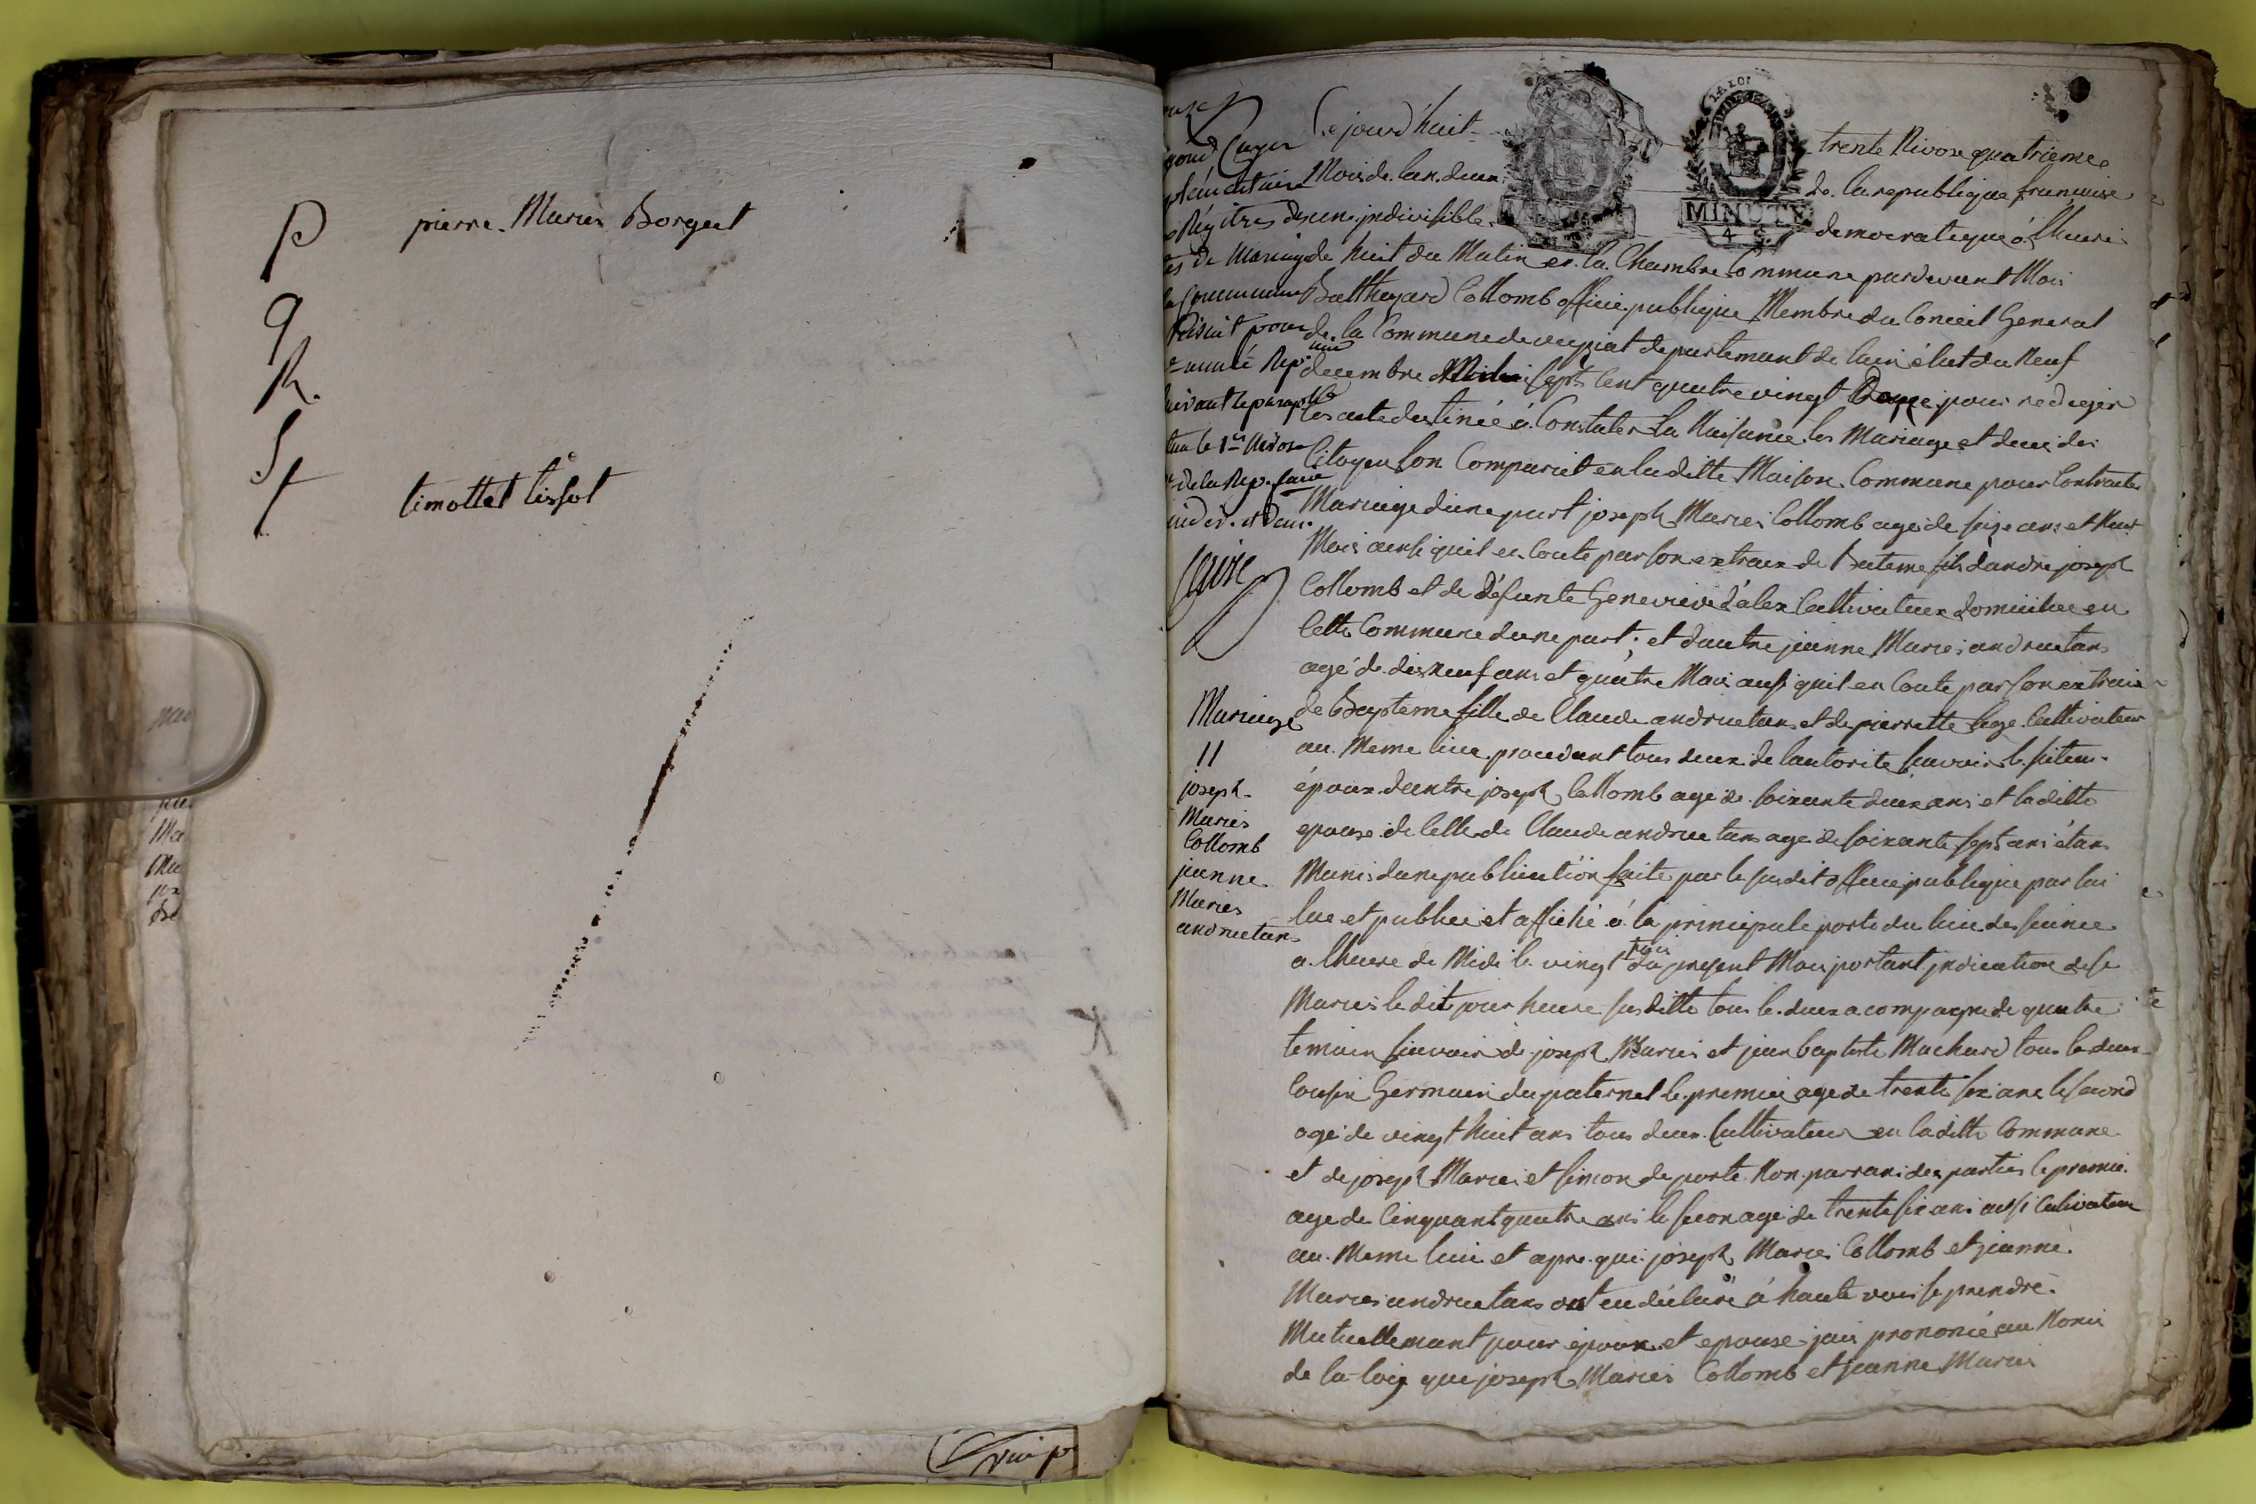 p pierre. Marie Borgeat
q
R.
S
t timottet tissot
Ce jourd'huit trente Nivose quatrieme
Mois de lan deux de la republique francaise
une indivisible democratique à lheure
MINUTE
4 S.
LA LOI
de huit du Matin en la Chambre Commune pardevant Moi
Balthazard Collomb officié publique Membre du Conseil General
de la Commune de departemant de lain élut du Neuf
decembre Mil sept Cent quatre vingt Douze pour rediger
les acte destinée á Constater la Naisance les Mariage et deces des
Citoyen son Comparut en la ditte Maison Commune pour Contracter
Mariage dune part joseph Marie Collomb age de seize ans et Neuf
Mois ainsi quil en Coute par son extrait de Bateme fils dandre joseph
Collomb et de Défunte Genevieve dalex Cultivateur domicilie en
Cette Commune dune part; et dautre jeanne Marie andruetans
agé de disneuf ans et quatre Mois ausi quil en Coute par son extrait
de Bapteme fille de Claude andruetans et de pierrette Cultivateur
au Meme lieu procedant tous deux de lautorité scavoir le futeur
époux dentre joseph Collomb age de soixante deux ans et la ditte
epouse de Celle de Claude andruetans age de soixante sept ans étans
Munis dune publication faite par le susdit officié publique par lui
lue et publiée et affiché á la principale porte du lieu des seance
a lheure de Midi le vingt trois du present Mois portant jndication de se
Marier le dit jour heure susditte tous le deux acompagne de quatre
temoin scavoir de joseph Marie et jean baptiste Machard tous le deux
Cousin Germain du paternel le premier age de trente six ans le second
agé de vingt huit ans tous deux Cultivateur en la ditte Commune
et de joseph Marie et simon de porte Non parrans des parties le premie
age de Cinquant quatre ans le secon agé de trente six ans ausi Cultivateur
au Meme lieu et apre que joseph Marie Collomb et jeanne
Marie andruetans ont eu déclaré á haute vois se prendre
Mutuellemant pour époux et epouse jai prononcé au Nom
de la loix que joseph Marie Collomb et jeanne Marie
Mariage
11
joseph
Marie
Collomb
jeanne
Marie
andruetans